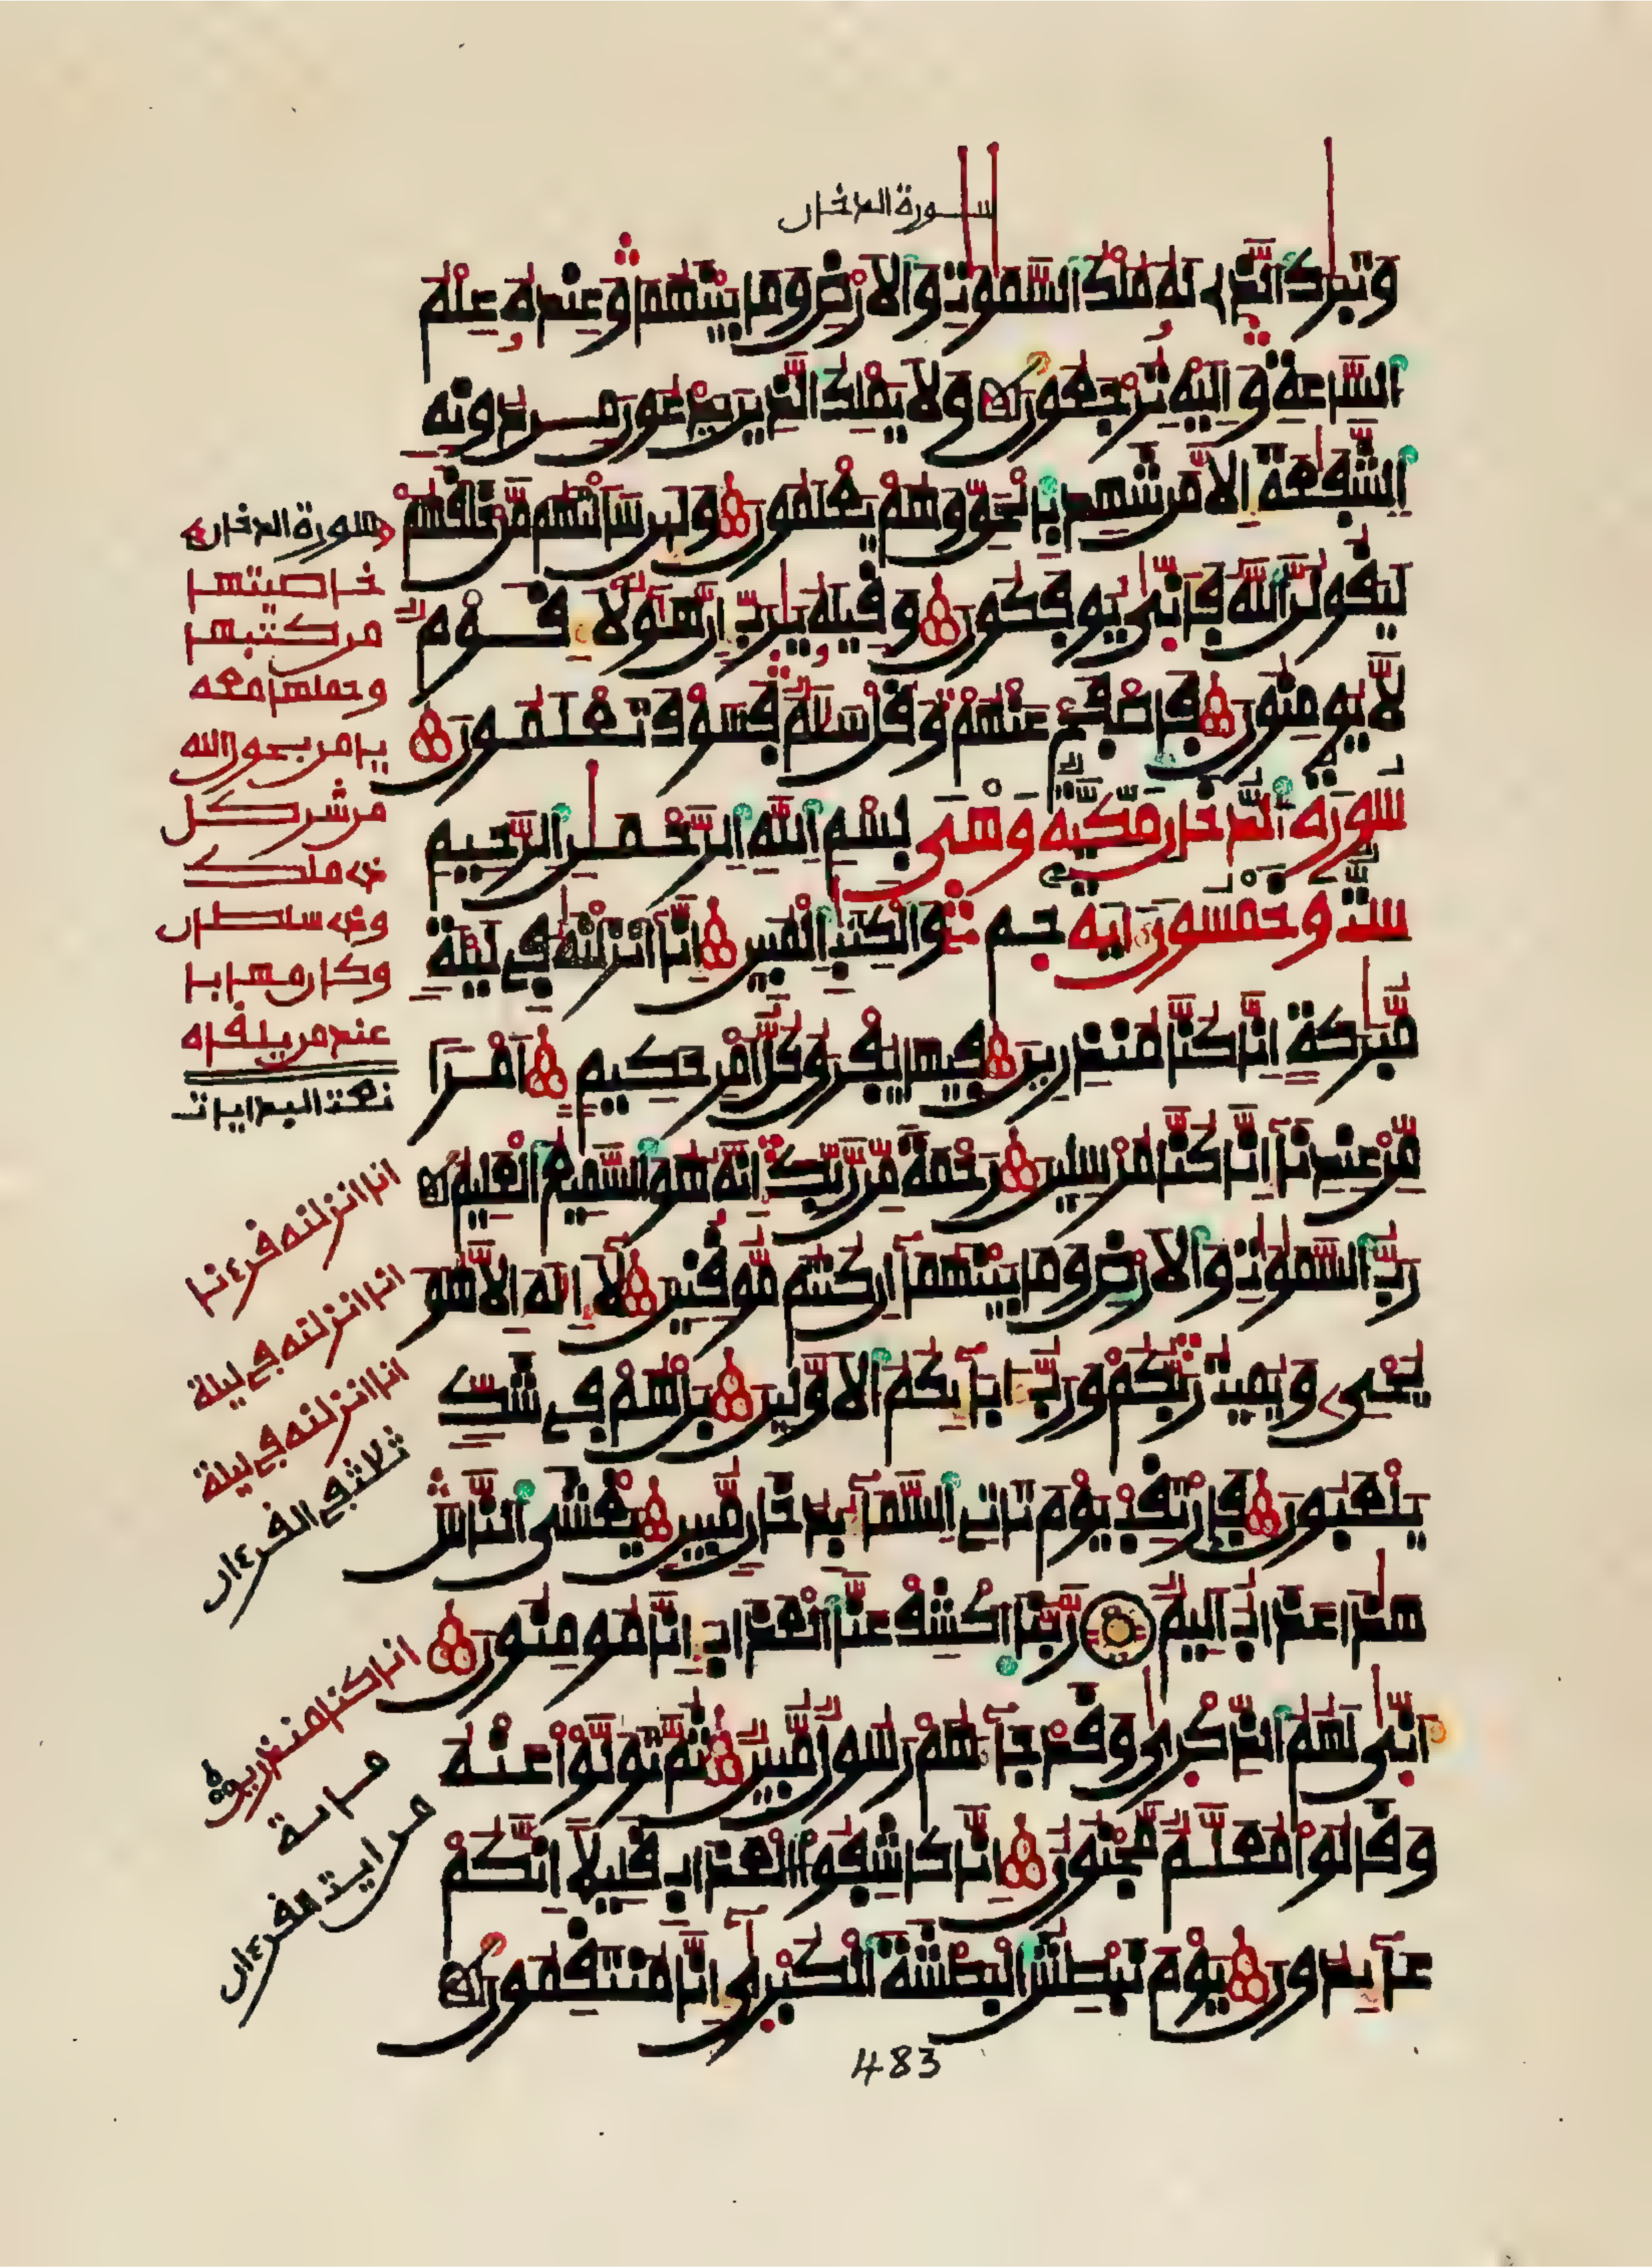 سورة الدخان
وتبرك الذے له ملك السموت والارض وما بينهما وعنده علم
الساعة واليه ترجعون ولا يملك الذين يدعون من دونه
الشفعة الا من شهد بالحق وهم يعلمون ولين سالتهم من خلقهم
ليقولن الله فانى يوفكون وقيله يرب ان هولا قوم
لا يومنون فاصفح عنهم وقل سلم فسوف تعلمون
سورة الدخان مكية وهى بسم الله الرحمن الرحيم
ست وخمسون اية حم والكتب المبين انا انزلنه فے ليلة
مبركة انا كنا منذرين فيها يفرق كل امر حكيم امرا
من عندنا انا كنا مرسلين رحمة من ربك انه هو السميع العليم
رب السموت والارض وما بينهما ان كنتم موقنين لا اله الا هو
يحى ويميت ربكم ورب ابايكم الاولين بل هم فے شك
يلعبون فارتقب يوم تاتے السما بدخان مبين يغشى الناس
هذا عذاب اليم ربنا اكشف عنا العذاب انا مومنون
انى لهم الذكرى وقد جا هم رسول مبين ثم تولوا عنه
وقالوا معلم مجنون انا كاشفوا العذاب قليلا انكم
عايدون يوم نبطش البطشة الكبرى انا منتقمون
483
سورة الدخان
خاصيتها
من كتبها
وحملها معه
يامن بعون الله
من شر كل
ذے ملك
وذے سلطان
وكان مهابا
عند من يلقاه
نعت البدايات
انا انزلنه قرءنا
انا انزلنه فے ليلة
انا انزلنه فے ليلة
ثلاث فے القرءان
انا كنا منذرين
مراية
من ايت القرءان